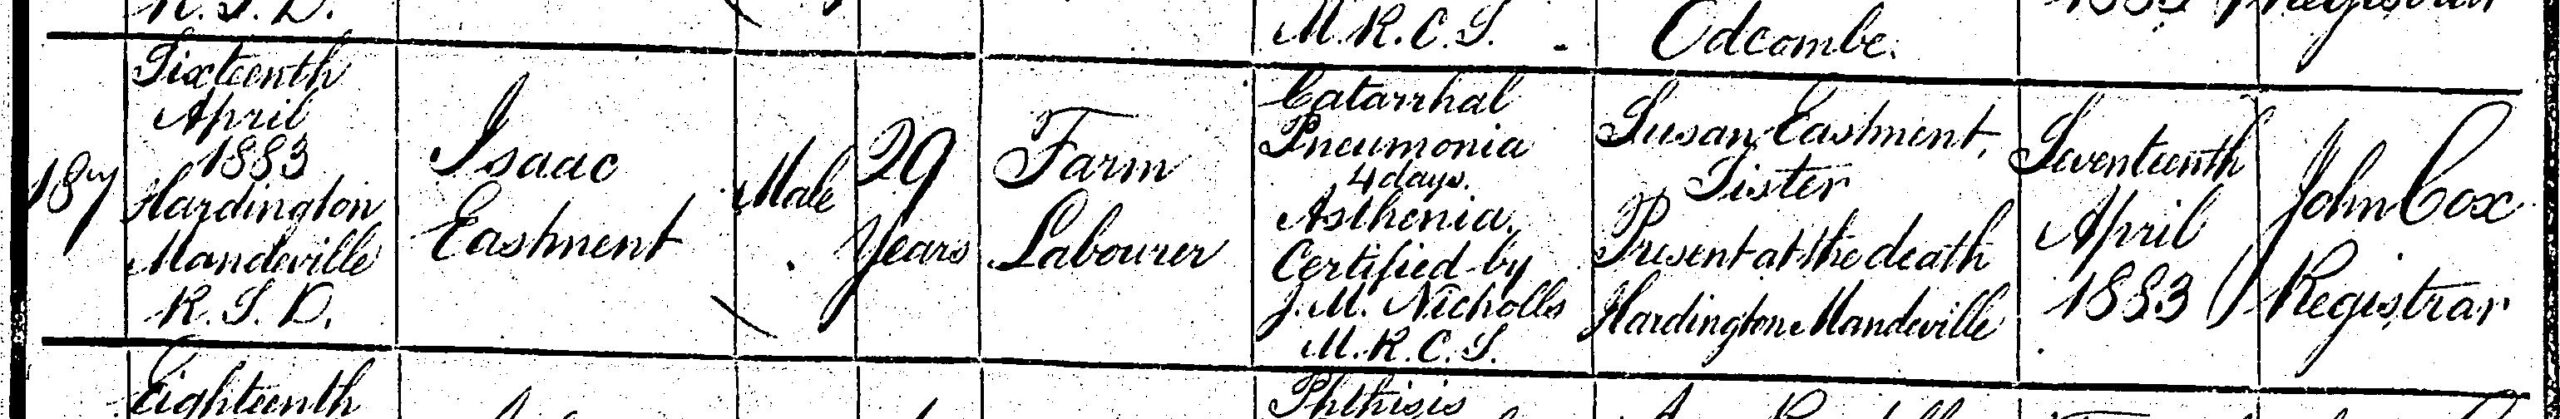 R. S. D.
M.R.C.S.
Odcombe.
1883
Registrar
187
Sixteenth
April
1883
Hardington
Mandeville
R. S. D.
Isaac
Eastment
Male
29
Years
Farm
Labourer
Catarrhal
Pneumonia
4 days.
Asthenia.
Certified by
J. M. Nicholls
M.R.C.S.
Susan Eastment,
Sister
Present at the death
Hardington Mandeville
Seventeenth
April
1883
John Cox
Registrar
Eighteenth
Phthisis